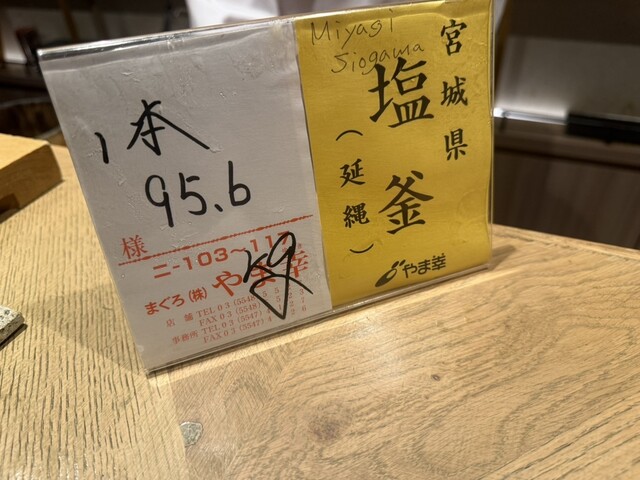 1本
95.6
様
ニ-103~117
まぐろ(株)やま幸
店舗 TEL 03(5548)
FAX 03(5548)
事務所 TEL 03(5547)
FAX 03(5547)
Miyagi
Siogama
宮城県
塩釜
(延縄)
やま幸